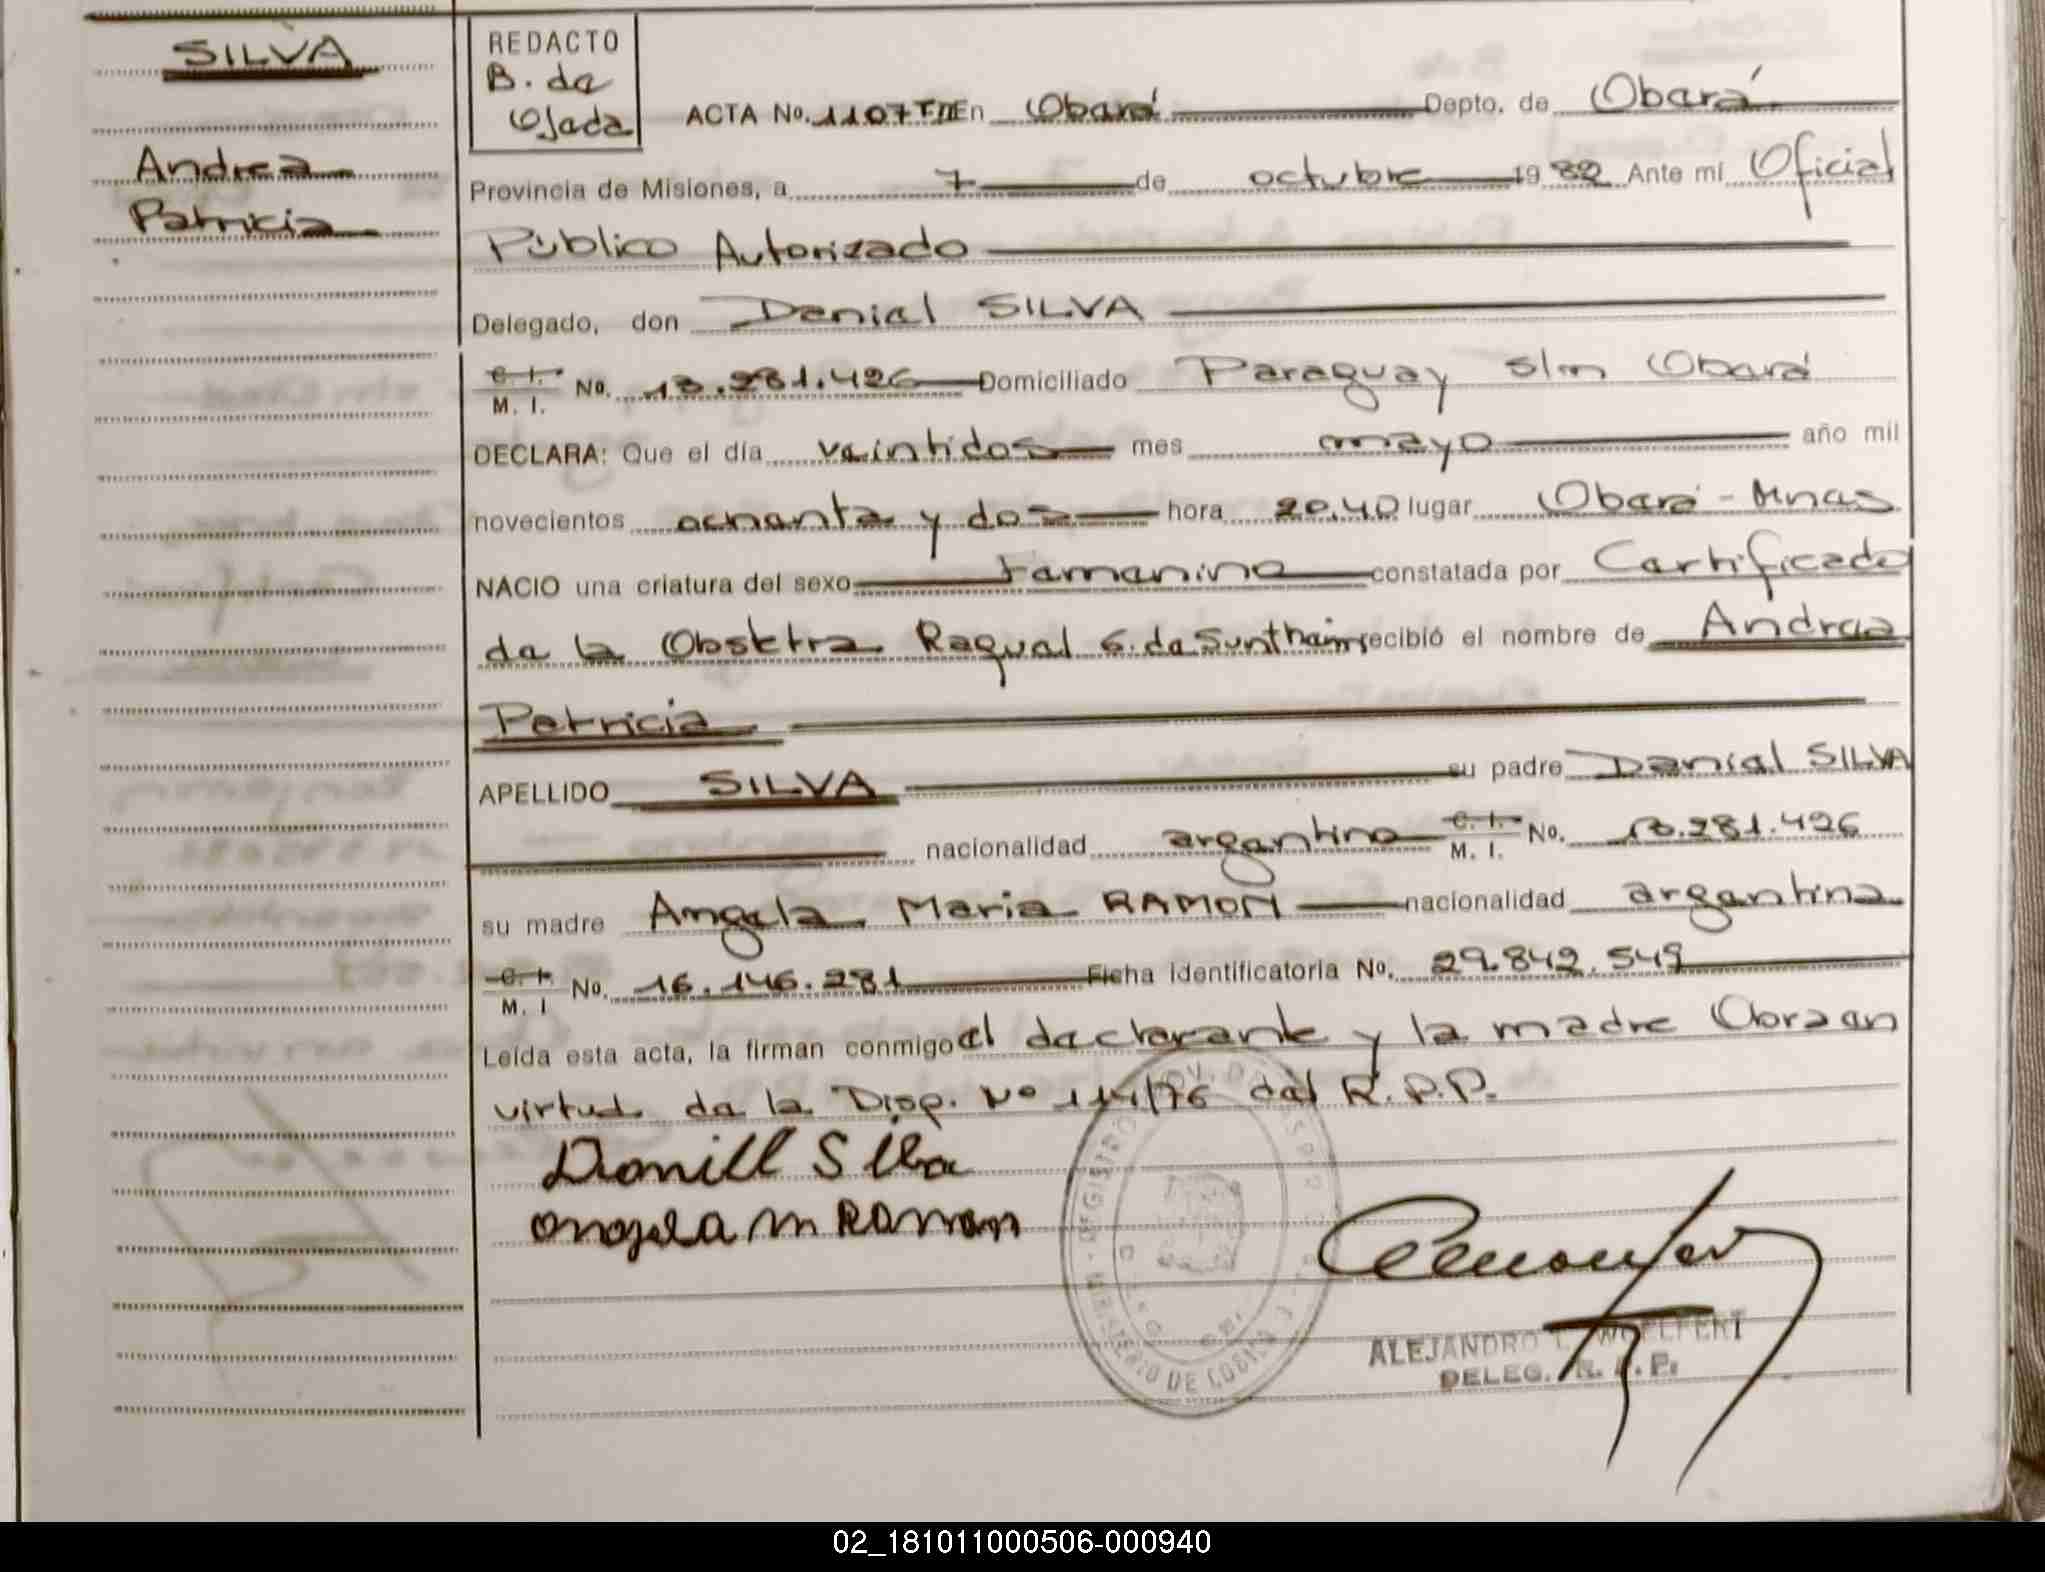 SILVA
Andrea
Patricia
REDACTO
B. de
Ojeda
ACTA No. 1107 TIII En Oberá Depto. de Oberá
Provincia de Misiones, a 7 de octubre 1982 Ante mi Oficial
Público Autorizado
Delegado, don Daniel SILVA
C. I. M. I. No. 13.281.426 Domiciliado Paraguay s/n Oberá
DECLARA: Que el día veintidos mes mayo año mil
novecientos ochenta y dos hora 20,40 lugar Oberá - Mnes
NACIO una criatura del sexo femenino constatada por Certificado
de la Obstetra Raquel G. de Suntheim recibió el nombre de Andrea
Patricia
APELLIDO SILVA su padre Daniel SILVA
nacionalidad argentino C. I. M. I. No. 13.281.426
su madre Angela Maria RAMON nacionalidad argentina
C. I. M. I No. 16.146.281 Ficha identificatoria No. 29.842.549
Leída esta acta, la firman conmigo el declarante y la madre Obra en
virtud de la Disp. Nº 114/76 del R.P.P.
Daniel Silba
Angela M Ramon
REGISTRO PROV. DE LAS PERS
MINISTERIO DE GOBIERNO
ALEJANDRO WOELFERT
DELEG. R. P. P.
02_181011000506-000940